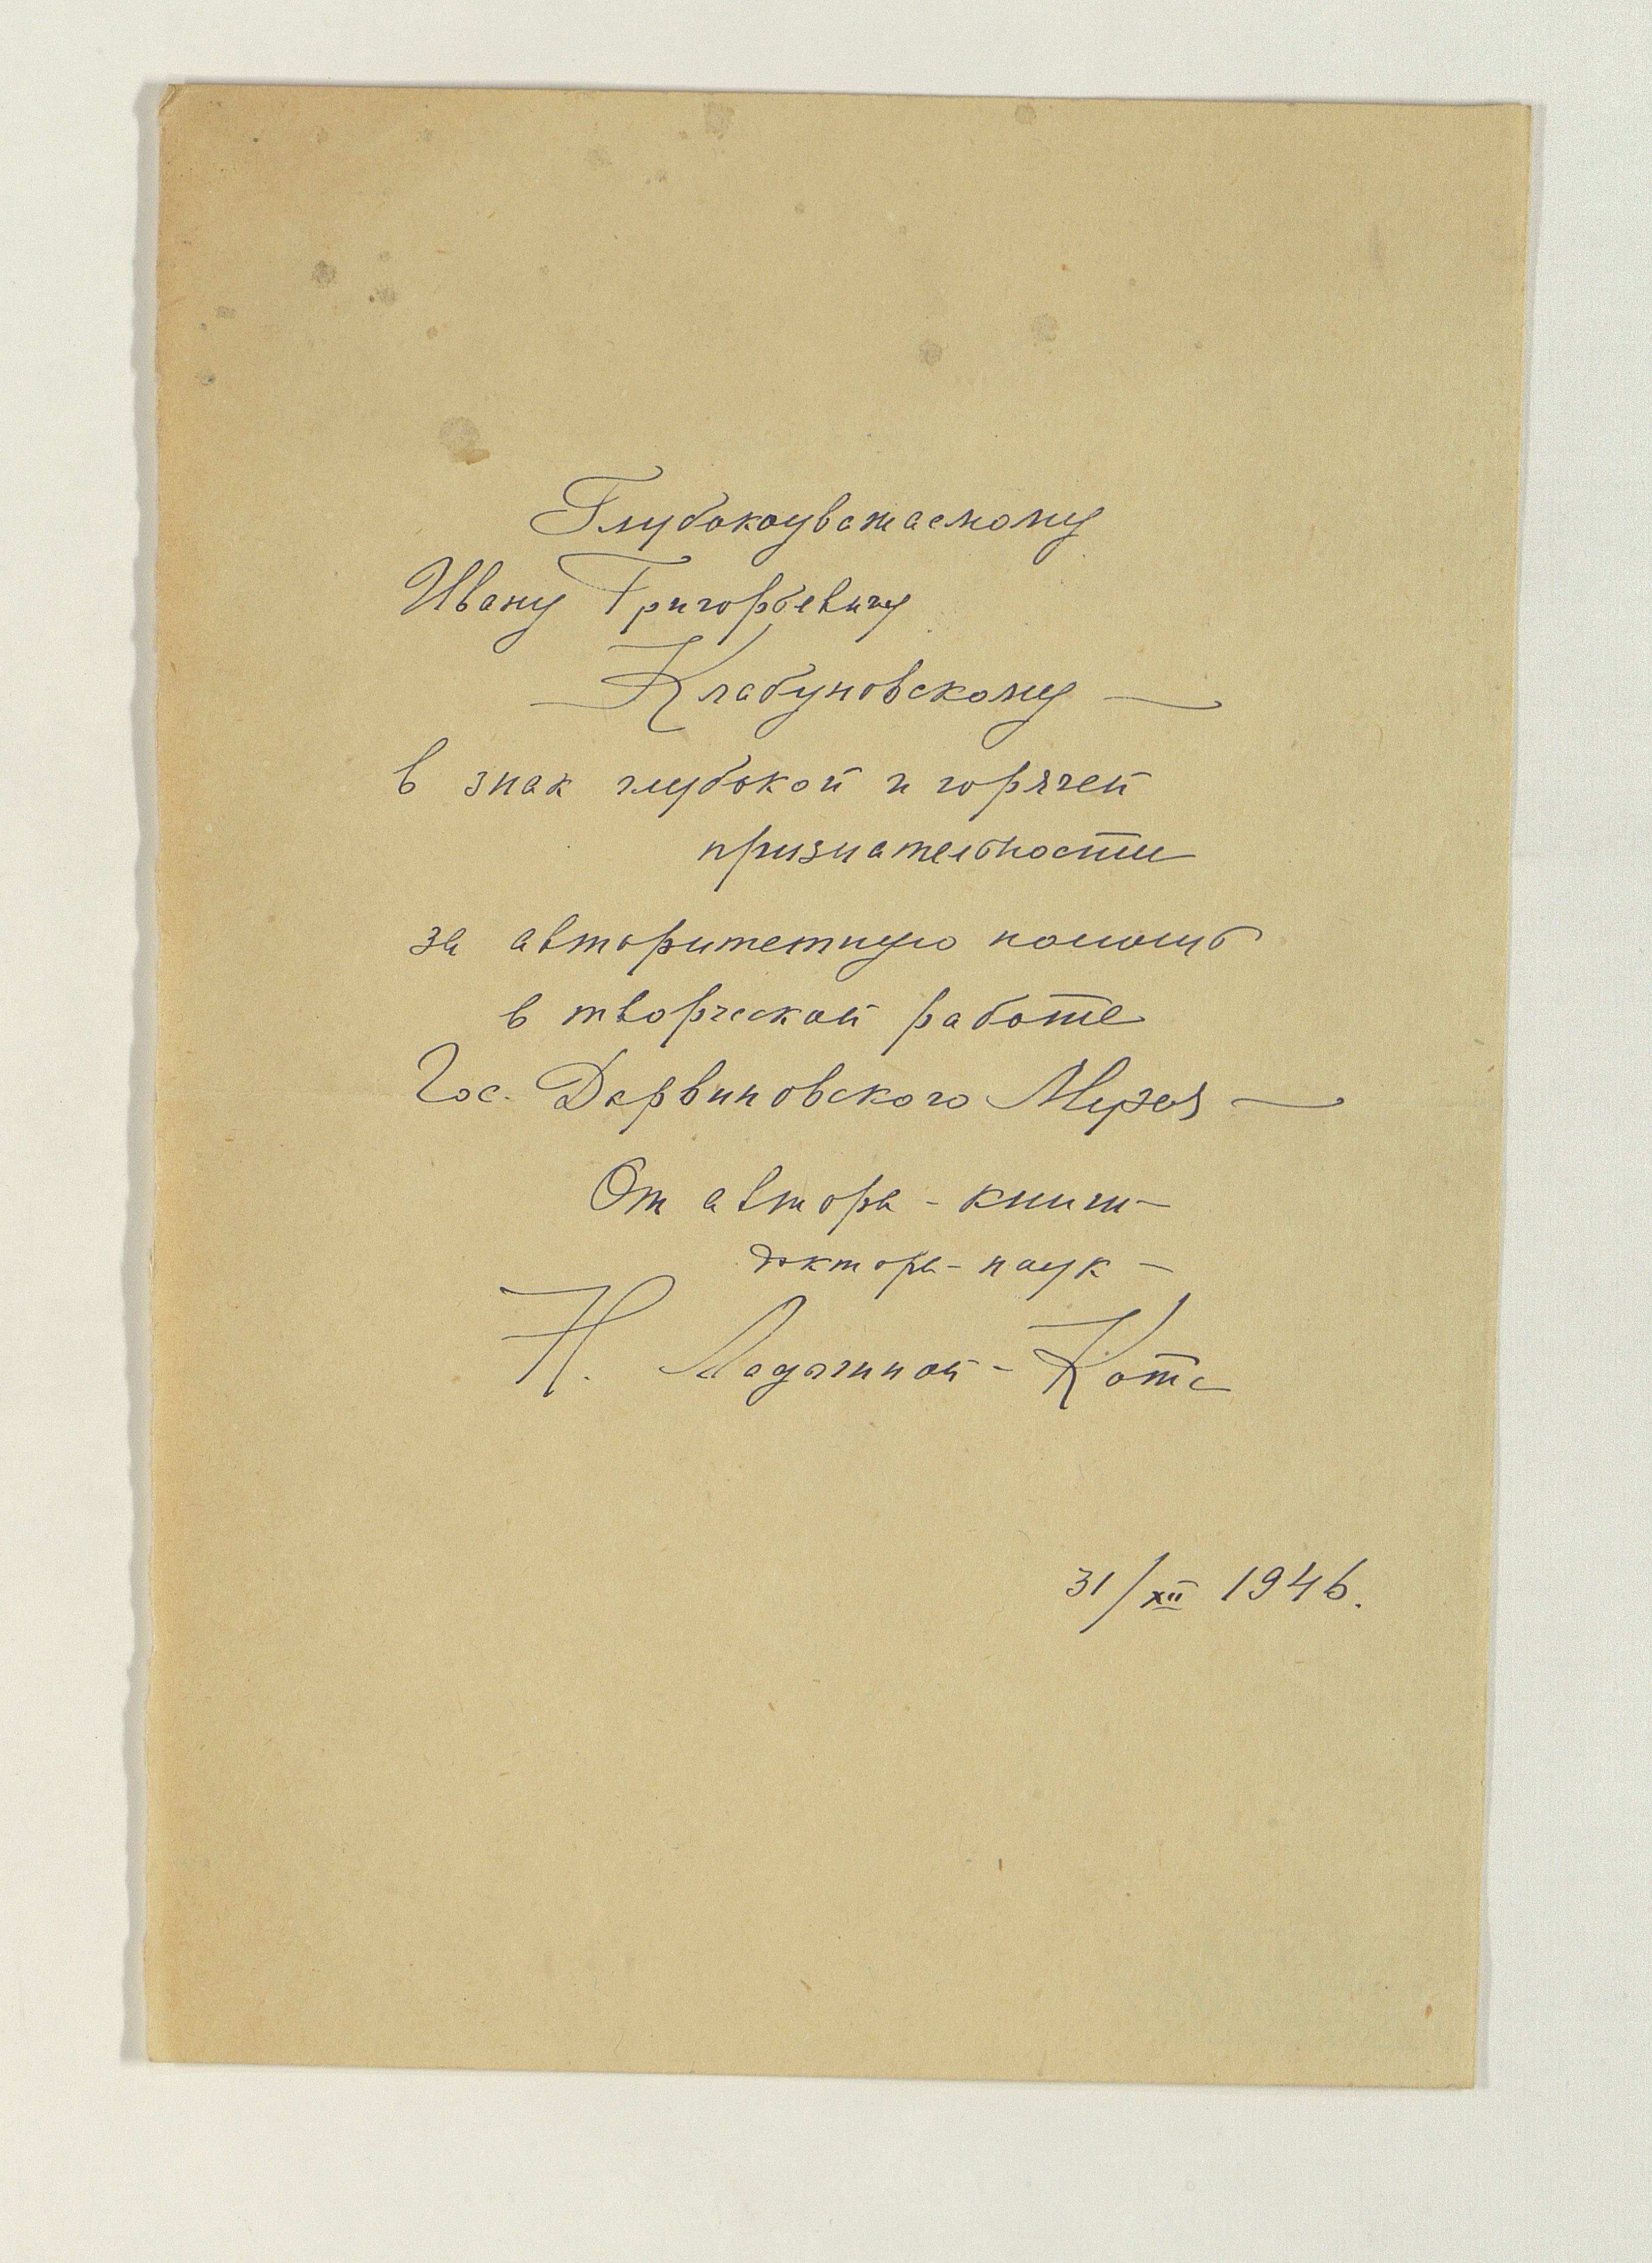 Глубокоуважаемому
Ивану Григорьевичу
— Клабуновскому —
в знак глубокой и горячей
признательности
за авторитетную помощь
в творческой работе
Гос. Дарвиновского Музея —
От автора - книги —
доктора - наук —
Н. Ладыгиной - Котс
31/XII 1946.